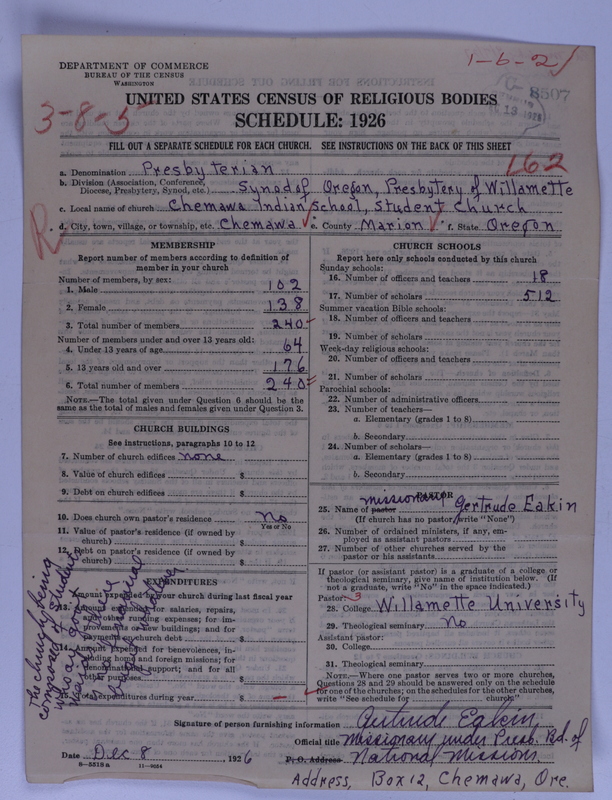 DEPARTMENT OF COMMERCE
BUREAU OF THE CENSUS
WASHINGTON
1-6-2
8507
3-8-5
UNITED STATES CENSUS OF RELIGIOUS BODIES
SCHEDULE: 1926
FILL OUT A SEPARATE SCHEDULE FOR EACH CHURCH. SEE INSTRUCTIONS ON THE BACK OF THIS SHEET
162
a. Denomination Presbyterian
b. Division (Association, Conference, Diocese, Presbytery, Synod, etc.) Synod of Oregon, Presbytery of Willamette
c. Local name of church Chemawa Indian School, Student Church
R
d. City, town, village, or township, etc. Chemawa e. County Marion f. State Oregon
MEMBERSHIP
Report number of members according to definition of
member in your church
Number of members, by sex:
1. Male 102
2. Female 138
3. Total number of members 240
Number of members under and over 13 years old:
4. Under 13 years of age 64
5. 13 years old and over 176
6. Total number of members 240
NOTE.—The total given under Question 6 should be the
same as the total of males and females given under Question 3.
CHURCH BUILDINGS
See instructions, paragraphs 10 to 12
7. Number of church edifices none
8. Value of church edifices $
9. Debt on church edifices $
10. Does church own pastor's residence No
Yes or No
11. Value of pastor's residence (if owned by
church) $
12. Debt on pastor's residence (if owned by
church) $
EXPENDITURES
Amount expended by your church during last fiscal year
13. Amount expended for salaries, repairs,
and other running expenses; for im-
provements or new buildings; and for
payments on church debt $
14. Amount expended for benevolences, in-
cluding home and foreign missions; for
denominational support; and for all
other purposes $
15. Total expenditures during year $
The church, being
composed of students
CHURCH SCHOOLS
Report here only schools conducted by this church
Sunday schools:
16. Number of officers and teachers 18
17. Number of scholars 512
Summer vacation Bible schools:
18. Number of officers and teachers
19. Number of scholars
Week-day religious schools:
20. Number of officers and teachers
21. Number of scholars
Parochial schools:
22. Number of administrative officers
23. Number of teachers—
a. Elementary (grades 1 to 8)
b. Secondary
24. Number of scholars—
a. Elementary (grades 1 to 8)
b. Secondary
missionary PASTOR
25. Name of pastor Gertrude Eakin
(If church has no pastor, write "None")
26. Number of ordained ministers, if any, em-
ployed as assistant pastors
27. Number of other churches served by the
pastor or his assistants
If pastor (or assistant pastor) is a graduate of a college or
theological seminary, give name of institution below. (If
not a graduate, write "No" in the space indicated.)
Pastor: 3
28. College Willamette University
29. Theological seminary No
Assistant pastor:
30. College
31. Theological seminary
NOTE.—Where one pastor serves two or more churches,
Questions 28 and 29 should be answered only on the schedule
for one of the churches; on the schedules for the other churches,
write "See schedule for church"
Signature of person furnishing information Gertrude Eakin
Official title Missionary under Presb. Bd. of
Date Dec 8, 1926 P. O. Address National Missions
8-5518a 11-9024
Address, Box 12, Chemawa, Ore.